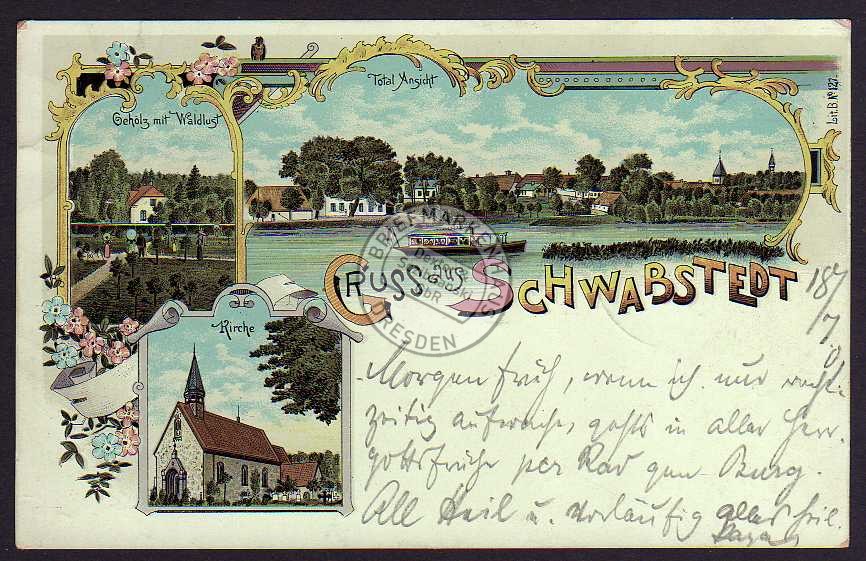 Total Ansicht
Gehölz mit Waldlust
Lit. B. No 127.
BRIEFMARKEN
DRESDEN
GRUSS aus SCHWABSTEDT
18/7
Kirche
Morgen früh, wenn ich nur recht-
zeitig aufwache, gehts in aller Herr-
gottsfrühe per Rad gen Burg.
All Heil u. vorläufig alles Heil